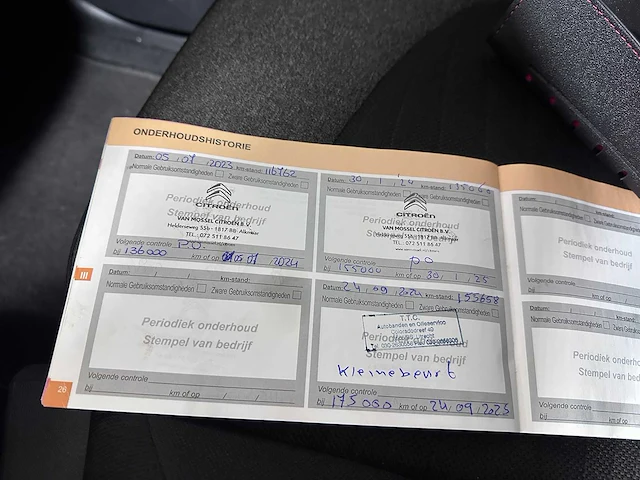 ONDERHOUDSHISTORIE
Datum: 05 / 07 / 2023 km-stand: 116762
Normale Gebruiksomstandigheden Zware Gebruiksomstandigheden
Periodiek onderhoud
Stempel van bedrijf
CITROËN
VAN MOSSEL CITROËN B.V.
Helderseweg 55b - 1817 BB Alkmaar
TEL.: 072 511 86 47
Volgende controle P.O.
bij 136000 km of op 05 07 / 2024
Datum: 30 / 1 / 24 km-stand:
Normale Gebruiksomstandigheden Zware Gebruiksomstandigheden
Periodiek onderhoud
Stempel van bedrijf
CITROËN
VAN MOSSEL CITROËN B.V.
TEL.: 072 511 86 47
Volgende controle p.o
bij 155000 km of op 30 / 1 / 25
Datum: / / km-stand:
Normale Gebruiksomstandigheden Zware Gebruiksomstandigheden
Periodiek onderhoud
Stempel van bedrijf
Volgende controle
bij km of op / /
Datum: 24 / 09 / 2024 km-stand: 155658
Normale Gebruiksomstandigheden Zware Gebruiksomstandigheden
T.T.C.
Autobanden en Olieservice
Coloradodreef 40
Stempel van bedrijf
Kleinebeurt
Volgende controle
bij 175000 km of op 24 / 09 / 2025
Datum:
Normale Gebruiksomstandigheden
Periodiek onderhoud
Stempel van bedrijf
Volgende controle
bij km of op
Datum:
Normale Gebruiksomstandigheden
Periodiek
Stempel van
Volgende controle
bij km of op
III
28